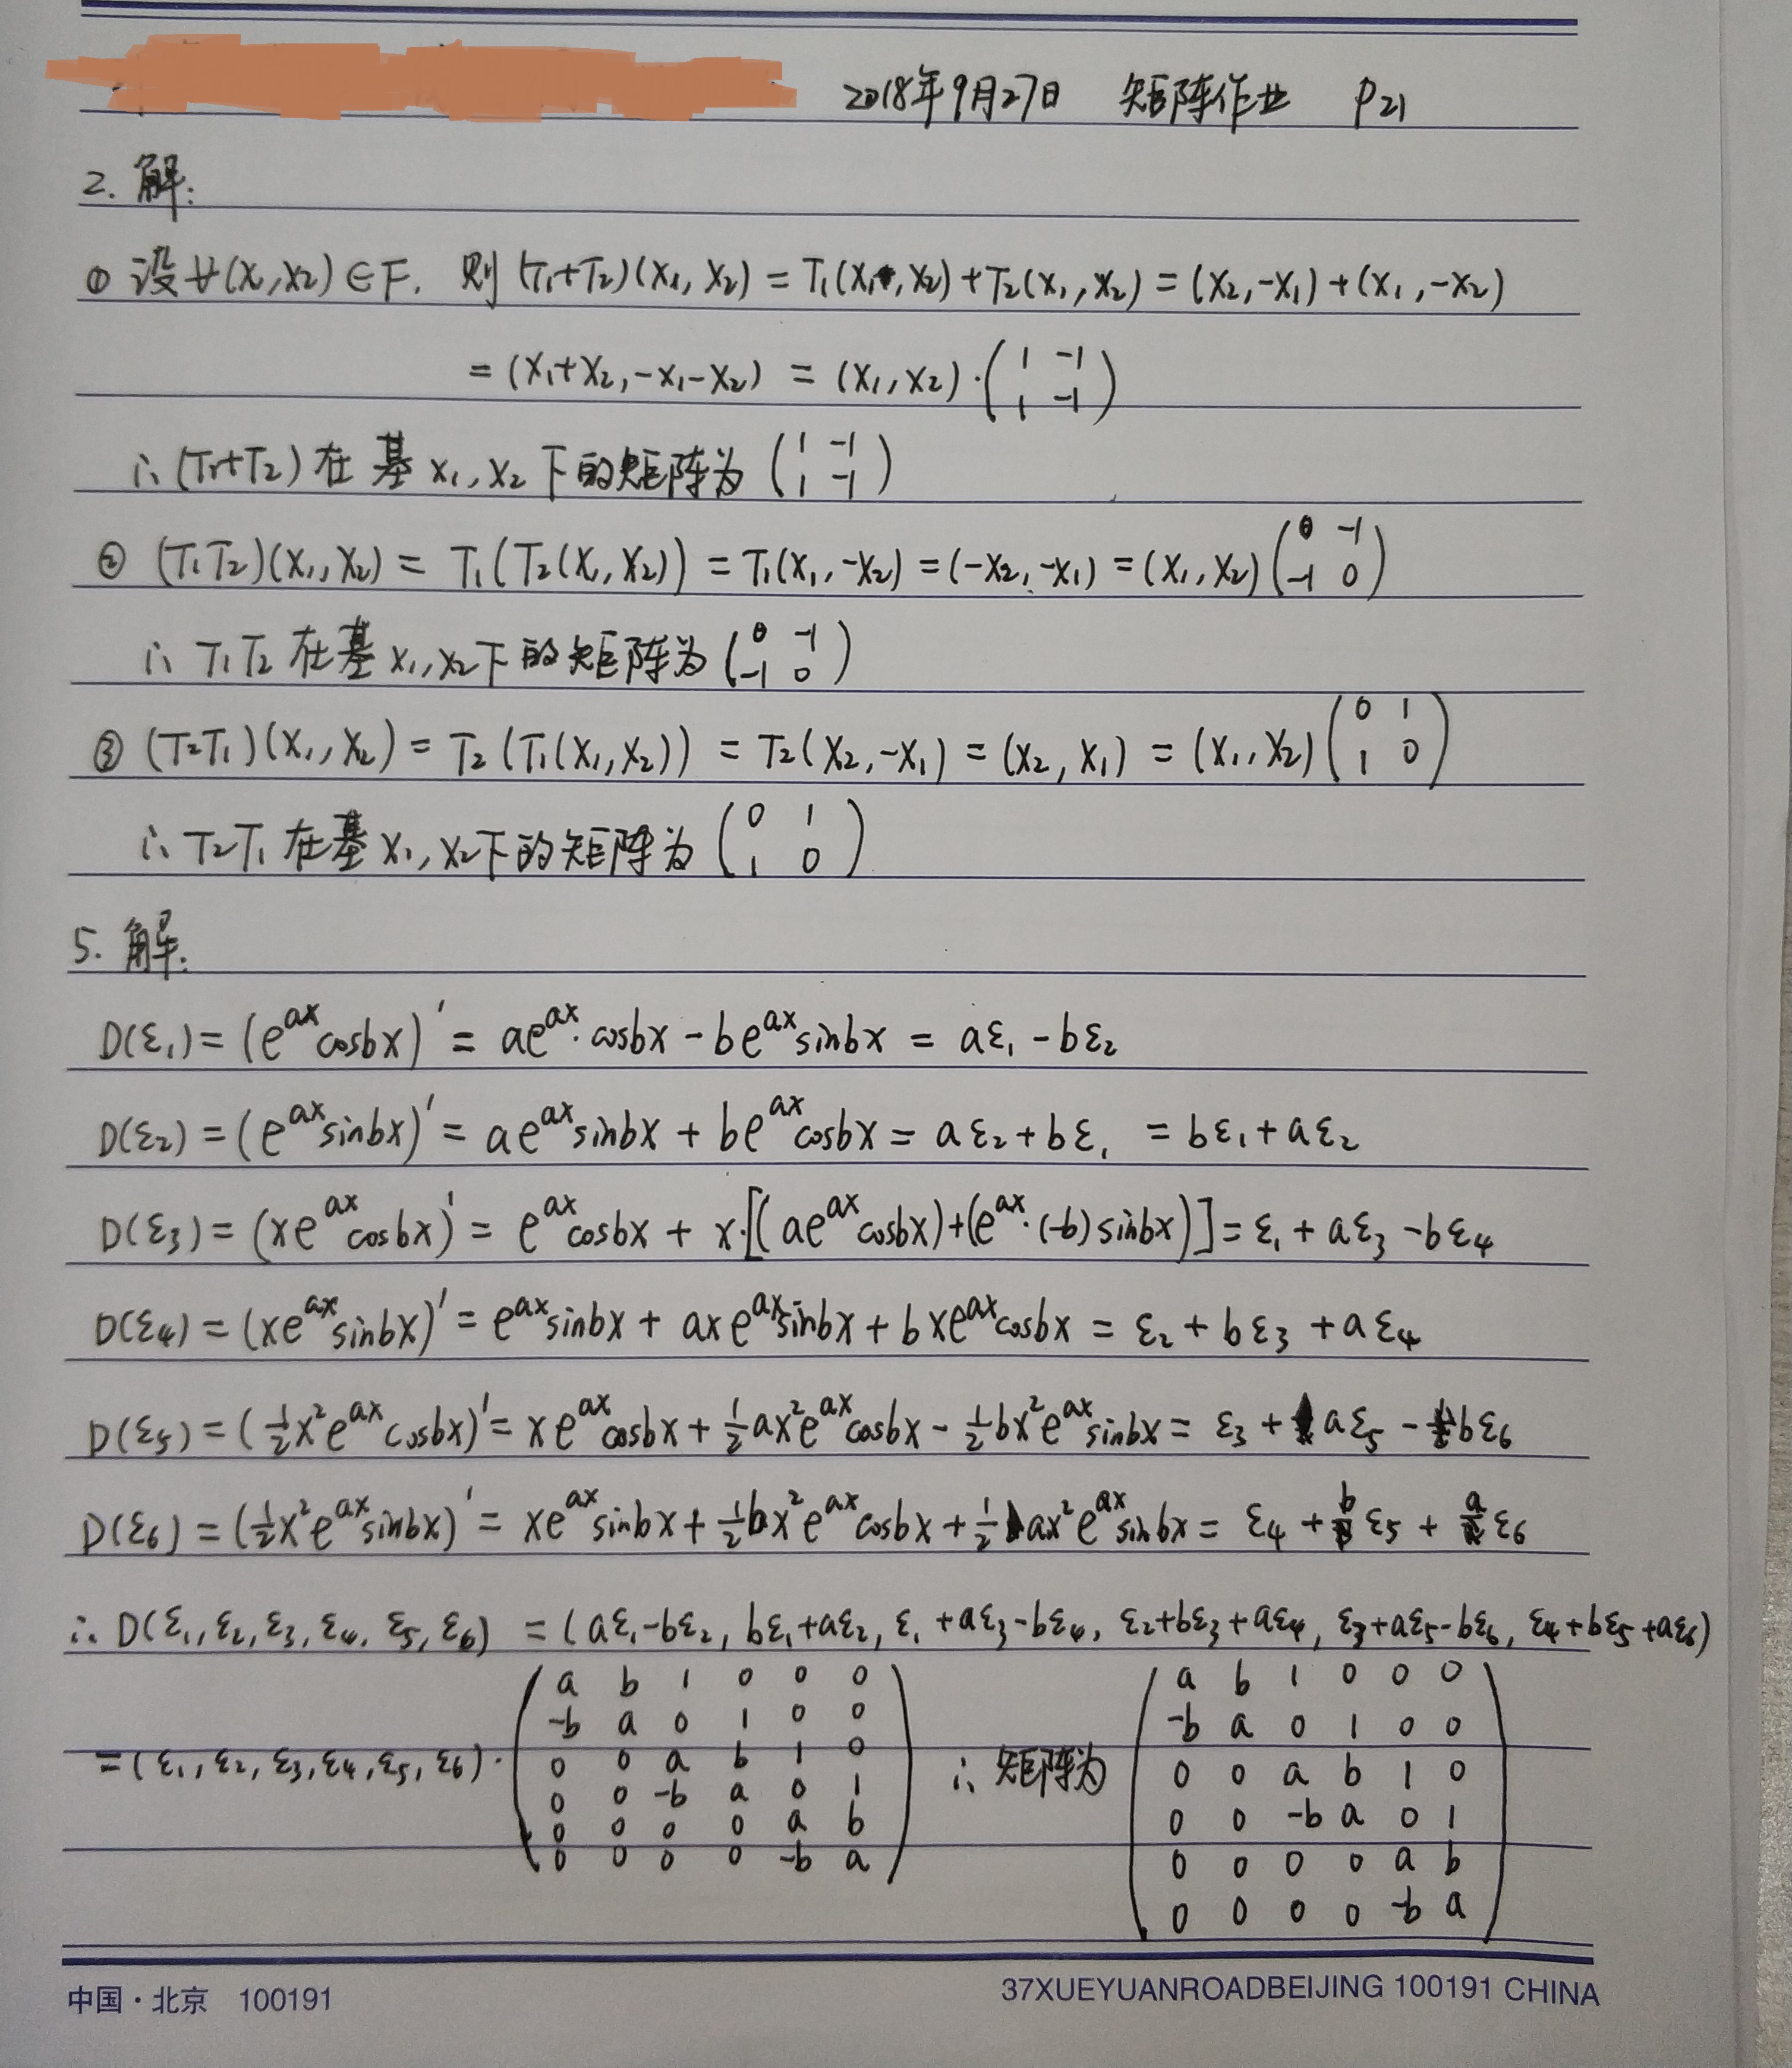 2018年9月27日 矩阵作业 P21
2. 解:
① 设∀(x1,x2)∈F. 则 (T1+T2)(x1, x2) = T1(x1, x2)+T2(x1, x2) = (x2,-x1)+(x1,-x2)
= (x1+x2,-x1-x2) = (x1,x2)·(1 -1
1 -1)
∴ (T1+T2) 在 基 x1,x2 下的矩阵为 (1 -1
1 -1)
② (T1T2)(x1,x2) = T1(T2(x1,x2)) = T1(x1,-x2) = (-x2,-x1) = (x1,x2)(0 -1
-1 0)
∴ T1T2 在基 x1,x2下的矩阵为 (0 -1
-1 0)
③ (T2T1)(x1,x2) = T2(T1(x1,x2)) = T2(x2,-x1) = (x2,x1) = (x1,x2)(0 1
1 0)
∴ T2T1 在基 x1,x2下的矩阵为 (0 1
1 0)
5. 解:
D(ε1) = (e^ax cosbx)' = ae^ax·cosbx - be^ax sinbx = aε1 - bε2
D(ε2) = (e^ax sinbx)' = ae^ax sinbx + be^ax cosbx = aε2+bε1 = bε1+aε2
D(ε3) = (xe^ax cosbx)' = e^ax cosbx + x·[(ae^ax cosbx)+(e^ax·(-b)sinbx)] = ε1 + aε3 - bε4
D(ε4) = (xe^ax sinbx)' = e^ax sinbx + axe^ax sinbx + bxe^ax cosbx = ε2 + bε3 + aε4
D(ε5) = (1/2x²e^ax cosbx)' = xe^ax cosbx + 1/2ax²e^ax cosbx - 1/2bx²e^ax sinbx = ε3 + aε5 - bε6
D(ε6) = (1/2x²e^ax sinbx)' = xe^ax sinbx + 1/2bx²e^ax cosbx + 1/2ax²e^ax sinbx = ε4 + bε5 + aε6
∴ D(ε1,ε2,ε3,ε4,ε5,ε6) = (aε1-bε2, bε1+aε2, ε1+aε3-bε4, ε2+bε3+aε4, ε3+aε5-bε6, ε4+bε5+aε6)
=(ε1,ε2,ε3,ε4,ε5,ε6)·
a b 1 0 0 0
-b a 0 1 0 0
0 0 a b 1 0
0 0 -b a 0 1
0 0 0 0 a b
0 0 0 0 -b a
∴ 矩阵为
a b 1 0 0 0
-b a 0 1 0 0
0 0 a b 1 0
0 0 -b a 0 1
0 0 0 0 a b
0 0 0 0 -b a
中国·北京 100191
37XUEYUANROADBEIJING 100191 CHINA